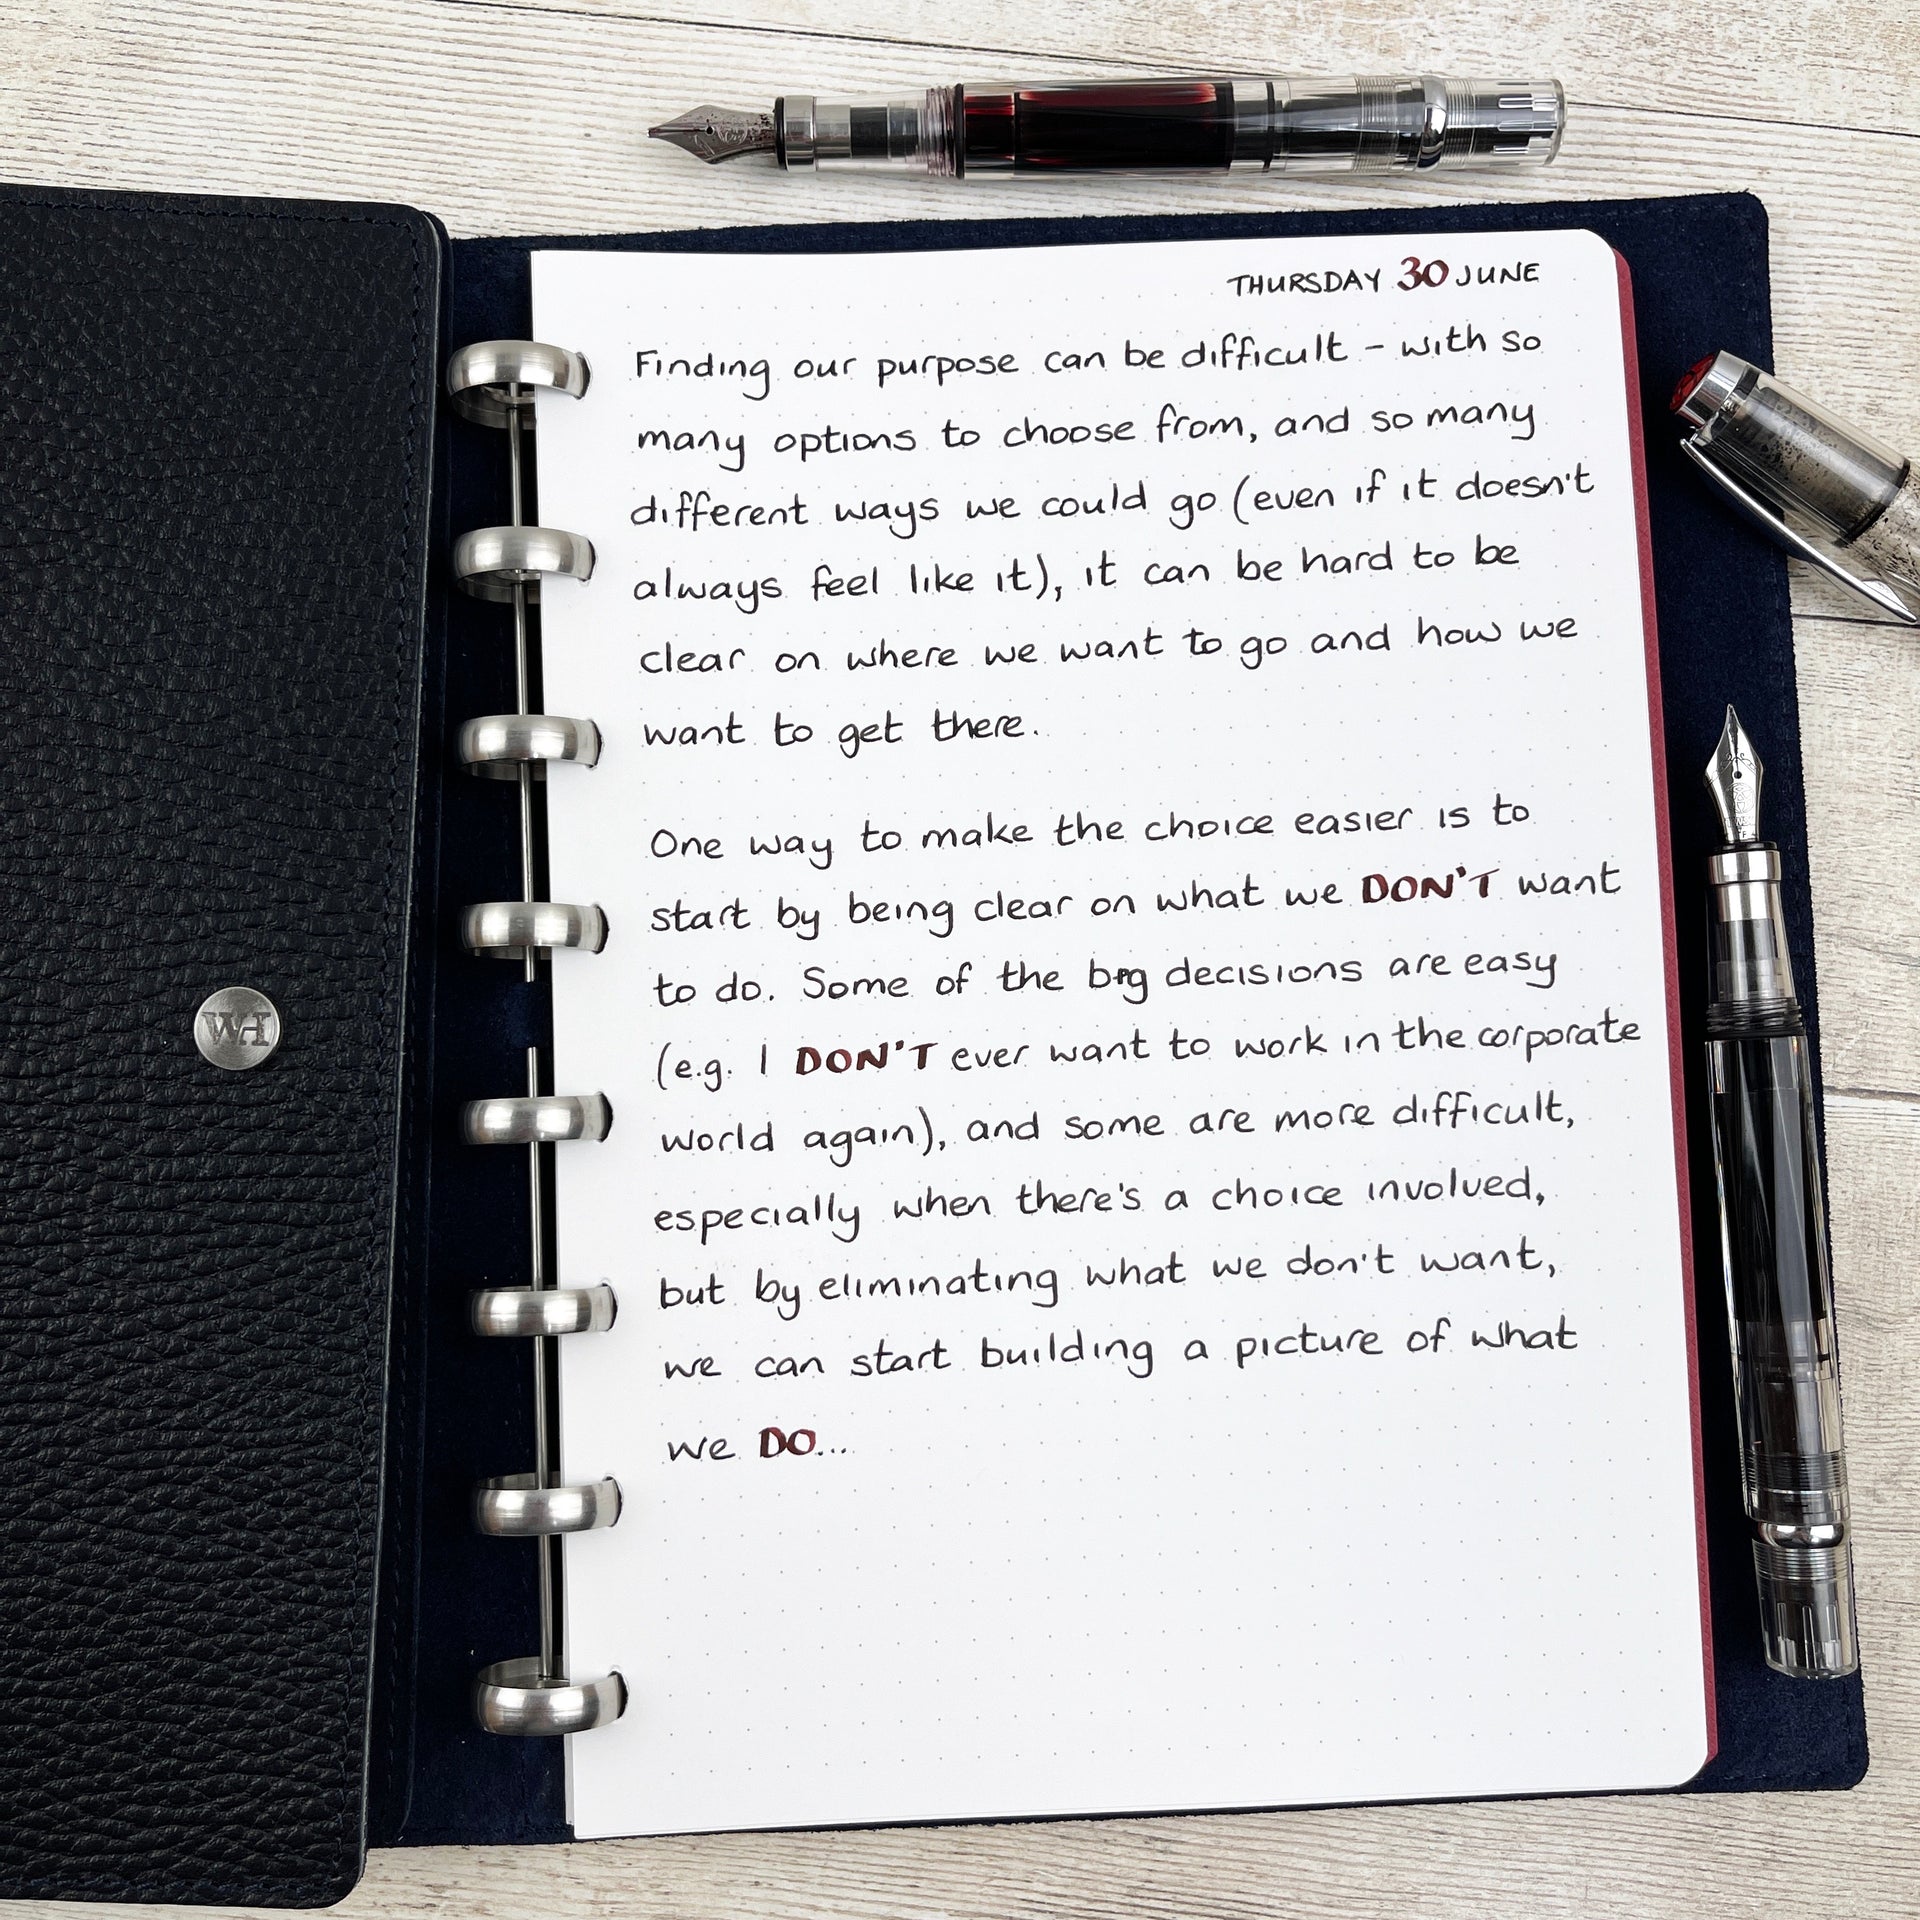 THURSDAY 30 JUNE
Finding our purpose can be difficult - with so
many options to choose from, and so many
different ways we could go (even if it doesn't
always feel like it), it can be hard to be
clear on where we want to go and how we
want to get there.
One way to make the choice easier is to
start by being clear on what we DON'T want
to do. Some of the big decisions are easy
(e.g. I DON'T ever want to work in the corporate
world again), and some are more difficult,
especially when there's a choice involved,
but by eliminating what we don't want,
we can start building a picture of what
we DO...
WH